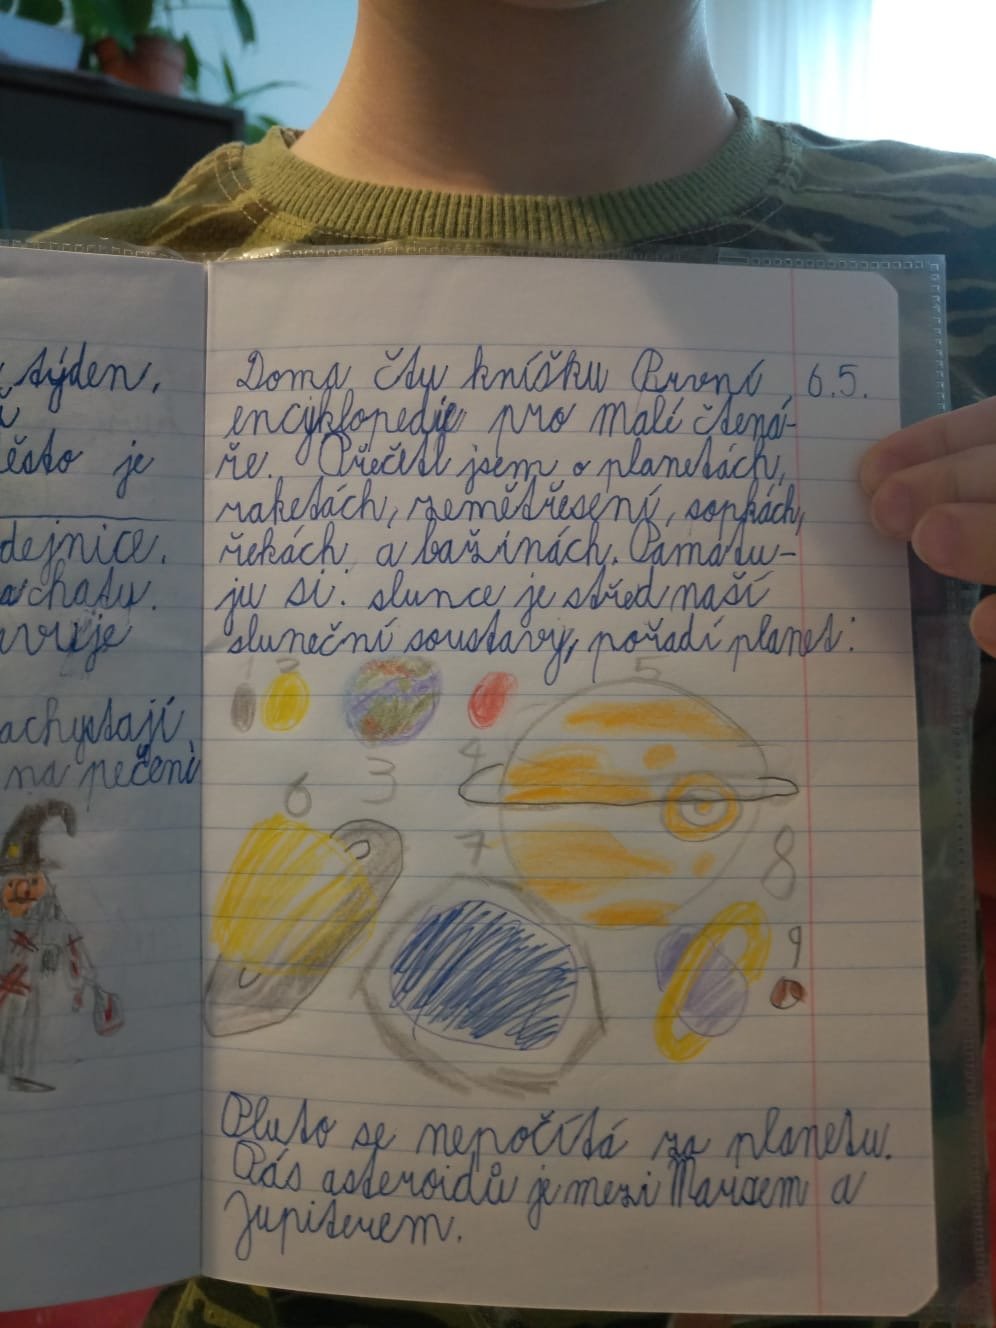 týden.
ěsto je
dejnice.
achaty.
achystají
na pečení
Doma čtu knížku První 6.5.
encyklopedie pro malé čtená-
ře. Přečetl jsem o planetách,
raketách, zemětřesení, sopkách,
řekách a bažinách. Pamatu-
ju si: slunce je střed naší
sluneční soustavy, pořadí planet:
1 2 5
4
6 3
7 8
9
Pluto se nepočítá za planetu.
Pás asteroidů je mezi Marsem a
Jupiterem.